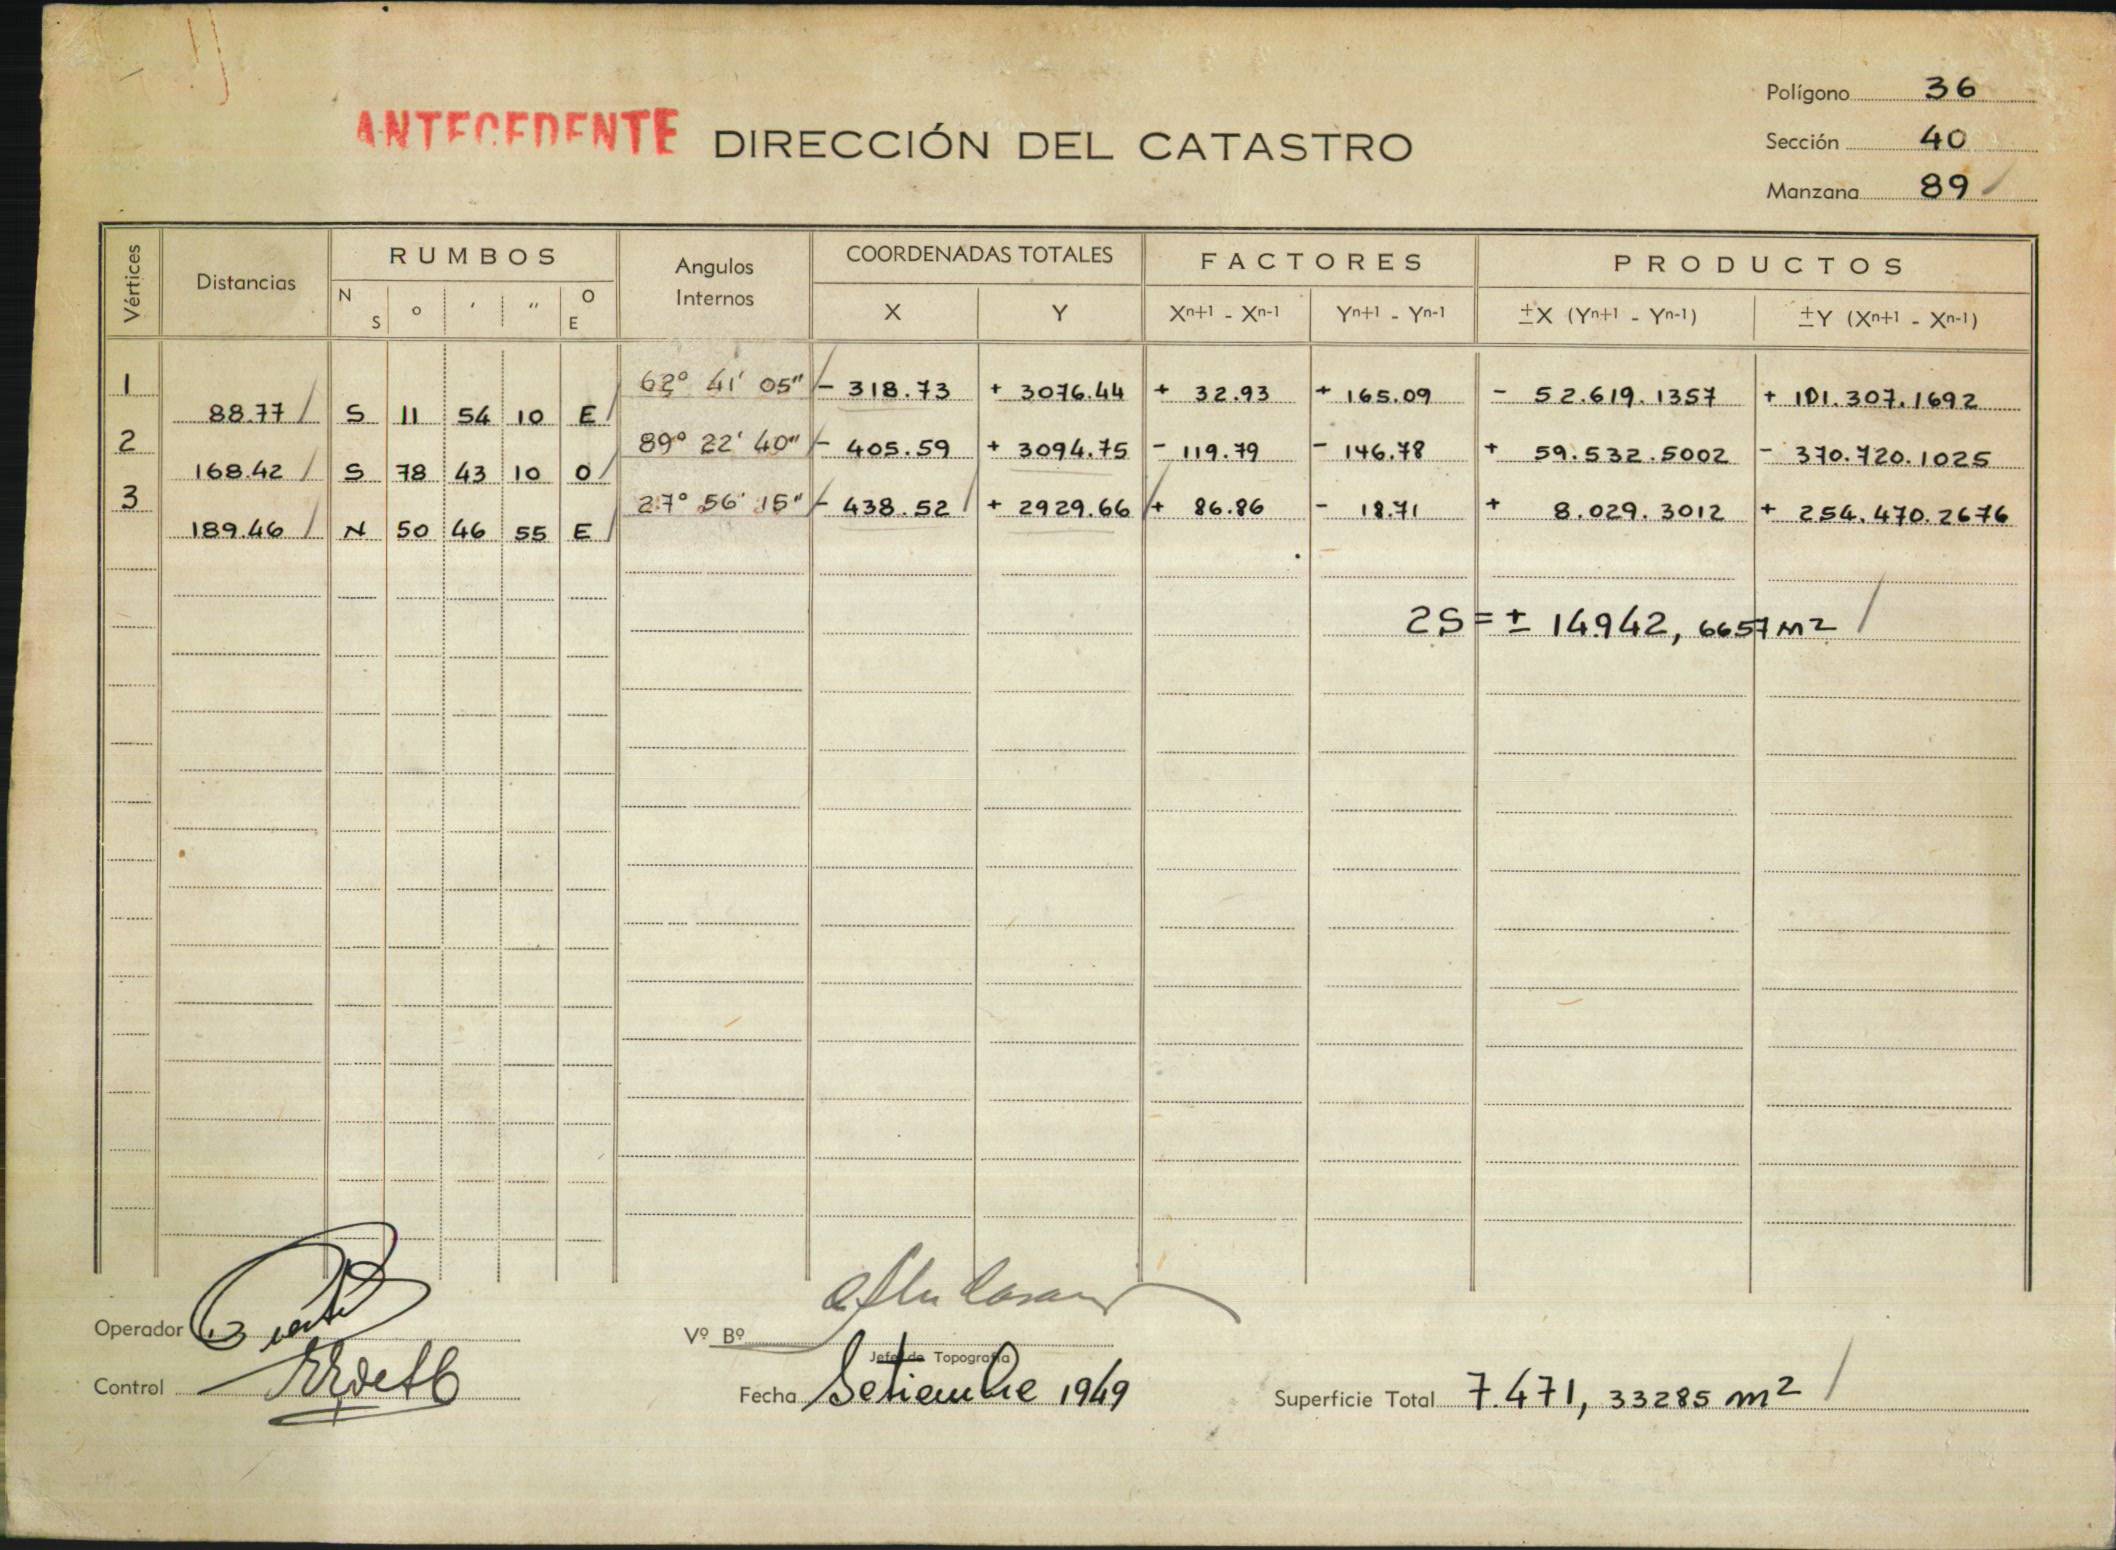 Polígono 36
ANTECEDENTE DIRECCIÓN DEL CATASTRO
Sección 40
Manzana 89
Vértices Distancias RUMBOS Angulos Internos COORDENADAS TOTALES FACTORES PRODUCTOS
N S ° ' " O E X Y Xn+1 - Xn-1 Yn+1 - Yn-1 ±X (Yn+1 - Yn-1) ±Y (Xn+1 - Xn-1)
1 62° 41' 05" - 318.73 + 3076.44 + 32.93 + 165.09 - 52.619.1357 + 101.307.1692
88.77 S 11 54 10 E
2 89° 22' 40" - 405.59 + 3094.75 - 119.79 - 146.78 + 59.532.5002 - 370.720.1025
168.42 S 78 43 10 O
3 27° 56' 15" - 438.52 + 2929.66 + 86.86 - 18.71 + 8.029.3012 + 254.470.2676
189.46 N 50 46 55 E
2S = ± 14942, 6657 m2
Operador
Vº Bº
Jefe de Topografía
Control
Fecha Setiembre 1949
Superficie Total 7.471, 33285 m2